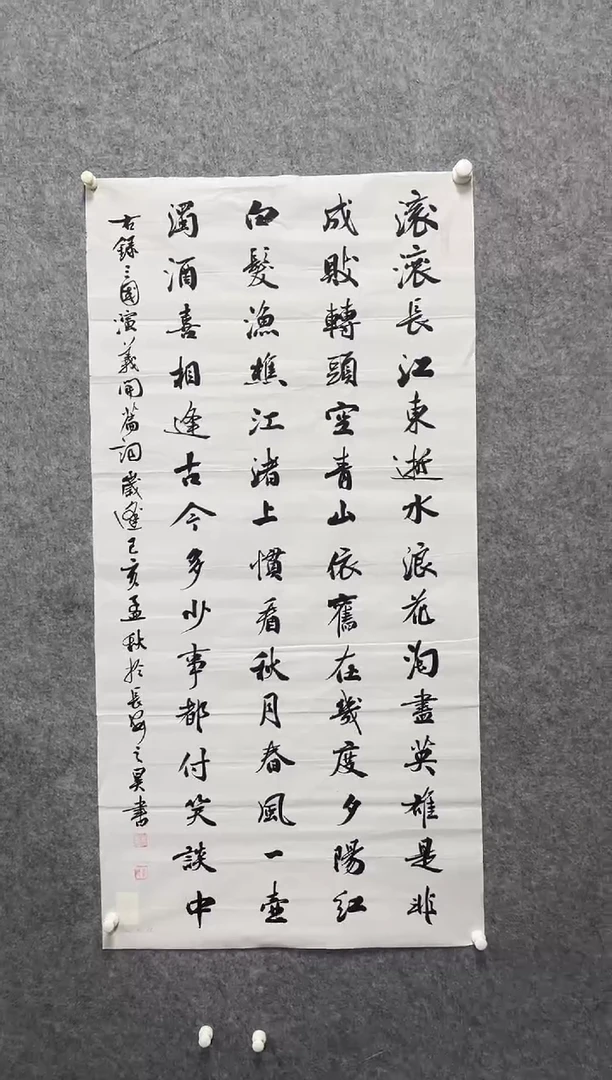 滚滚長江東逝水浪花淘盡英雄是非
成敗轉頭空青山依舊在幾度夕陽紅
白髮漁樵江渚上慣看秋月春風一壺
濁酒喜相逢古今多少事都付笑談中
右録三國演義開篇詞歲逢己亥孟秋於長安之昊書